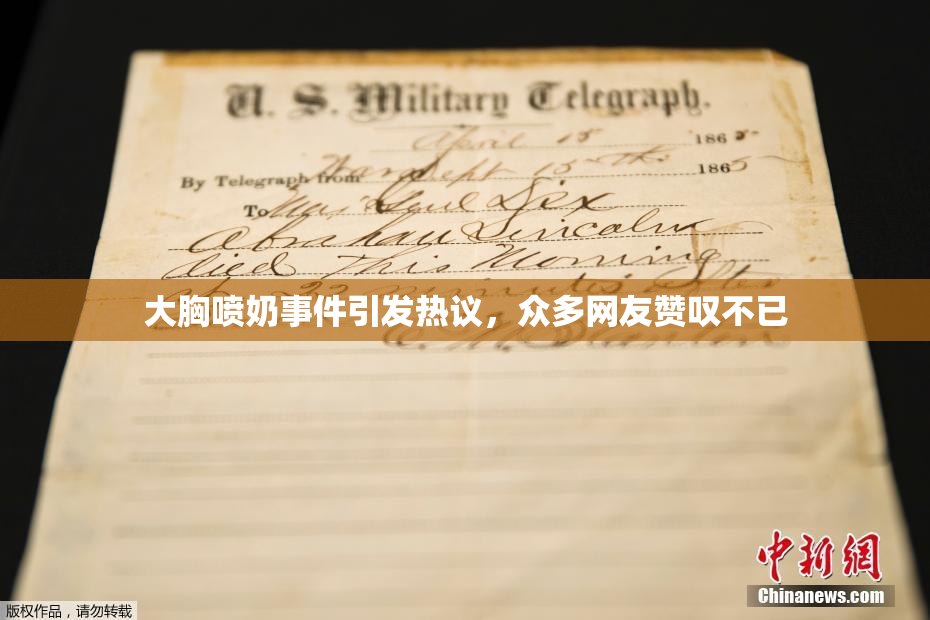 U. S. Military Telegraph.
April 15 1865
By Telegraph from War Dept 15th 1865
To Maj Genl Dix
Abraham Lincoln
died This Morning
22 minutes after
大胸喷奶事件引发热议，众多网友赞叹不已
E. M. Stanton
中新網
Chinanews.com
版权作品，请勿转载